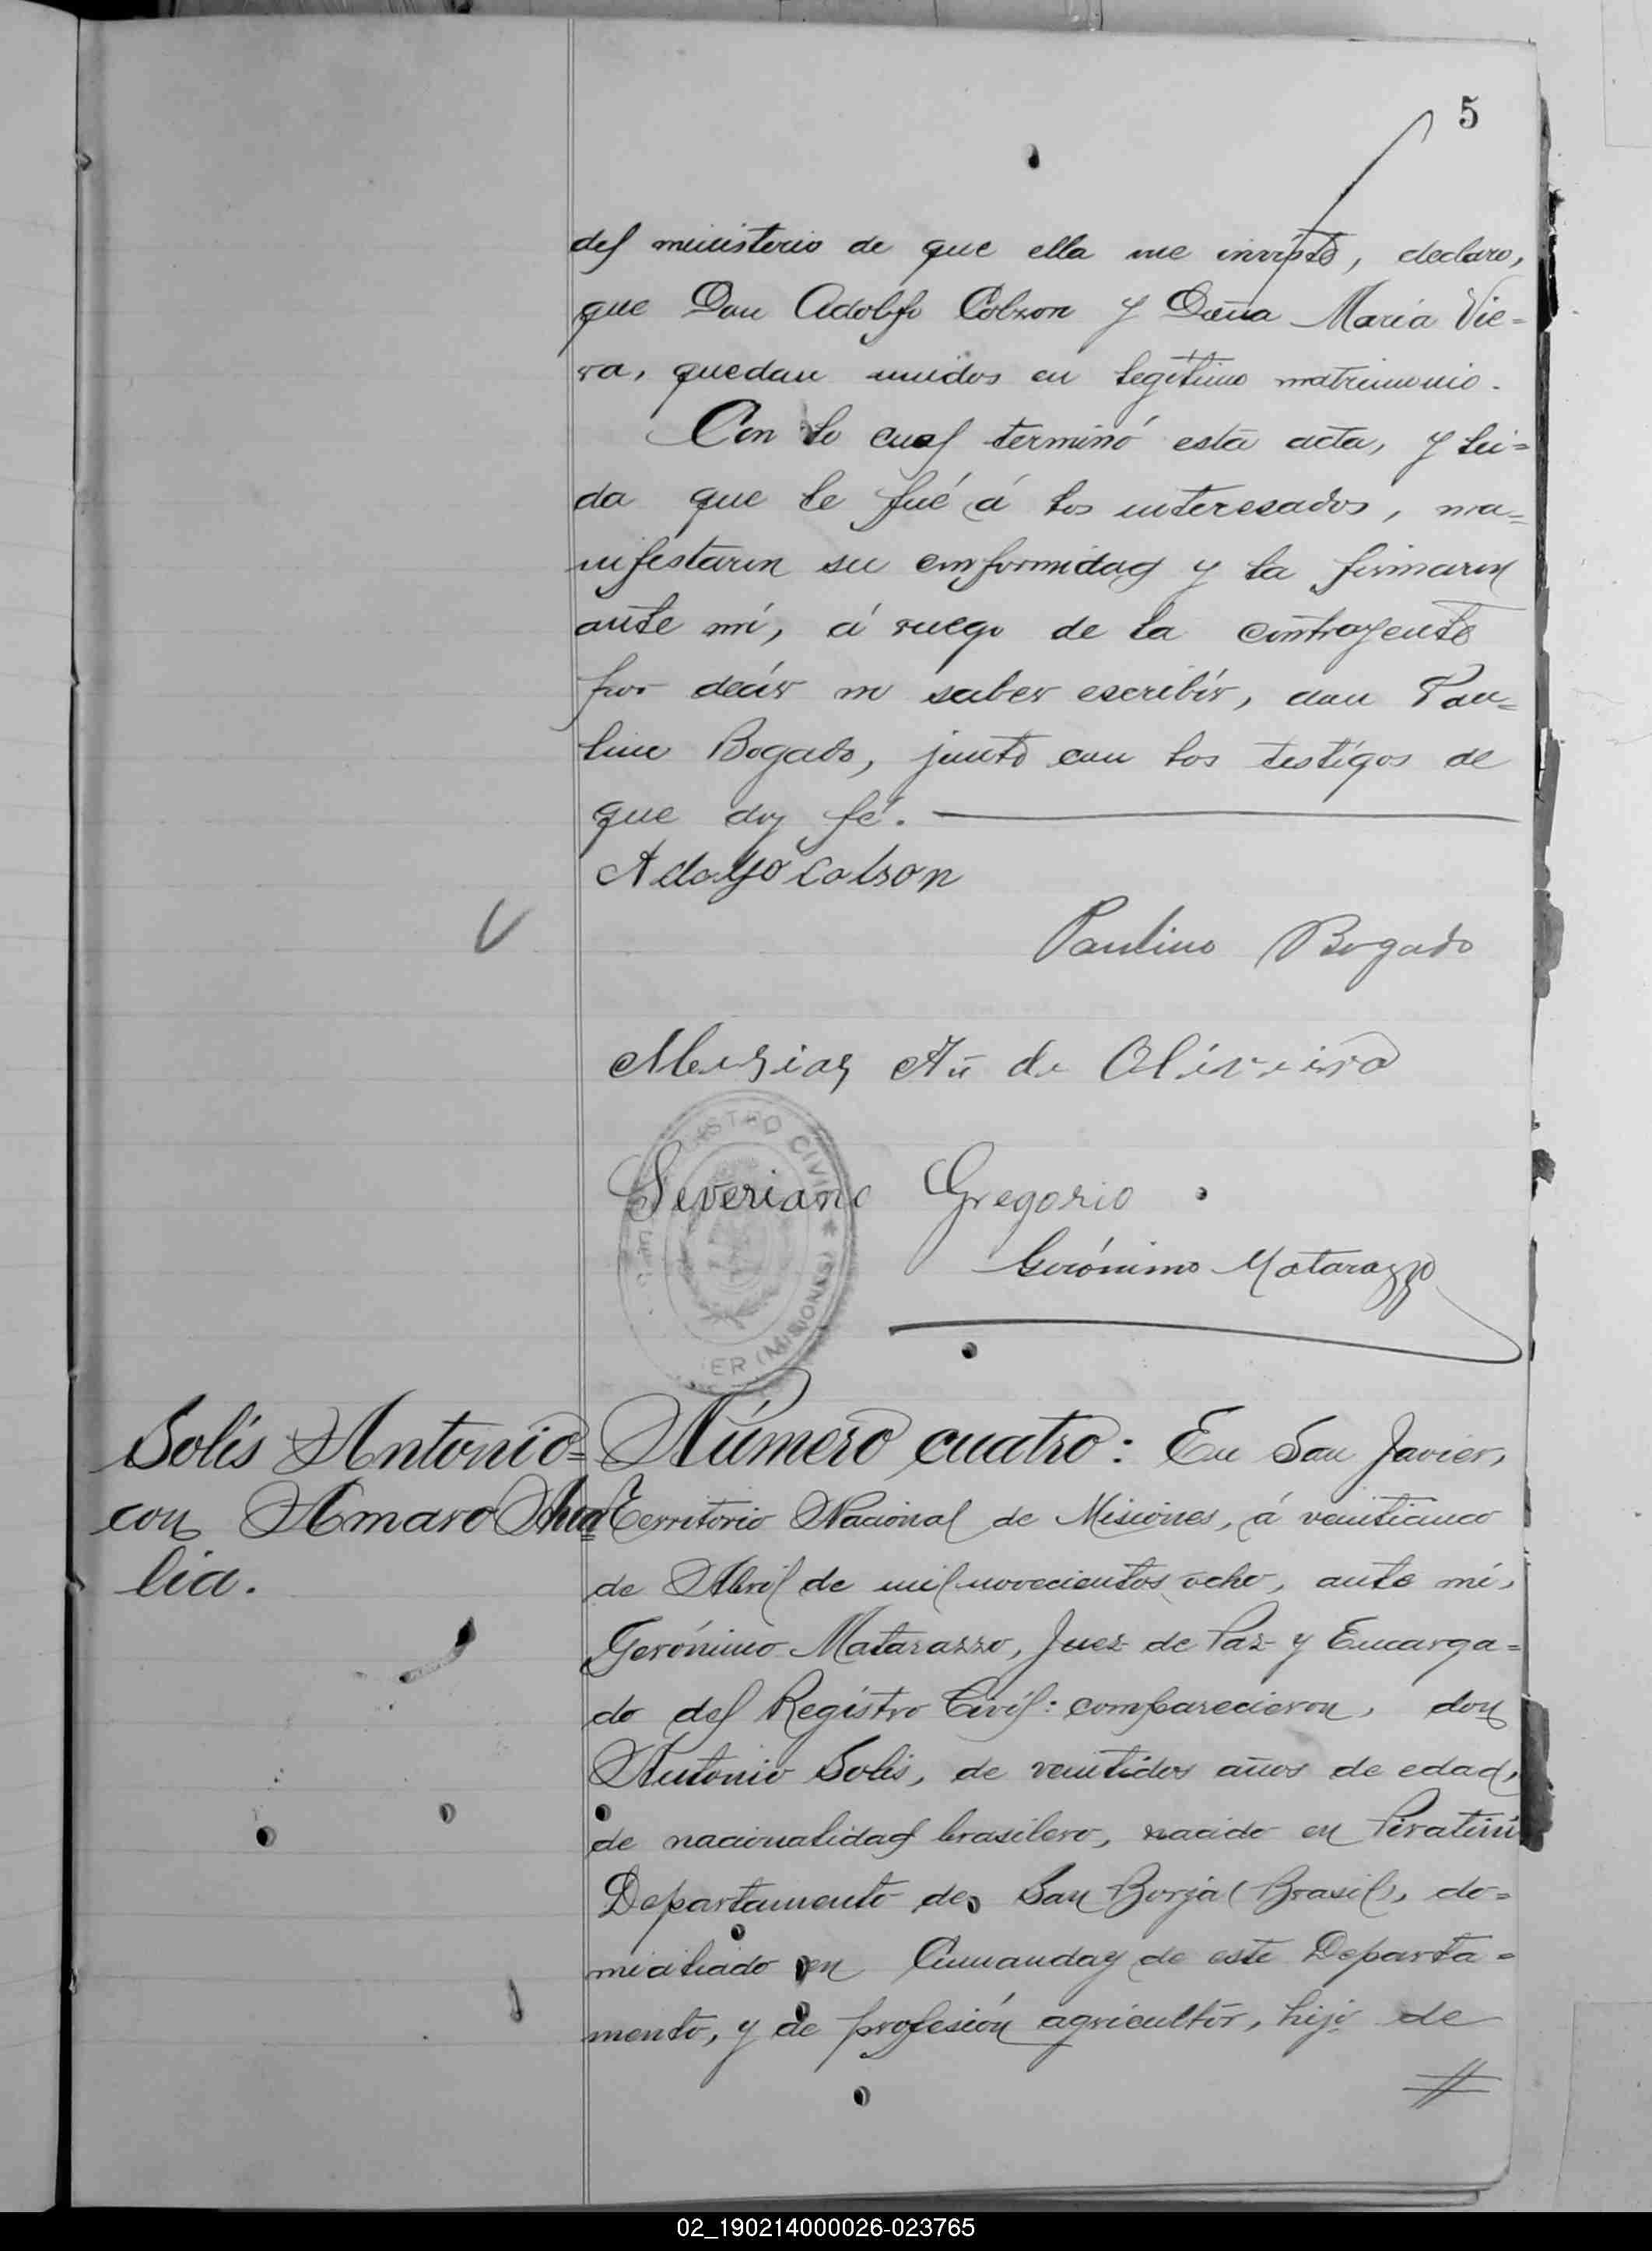 5
del ministerio de que ella me inviste, declaro,
que Don Adolfo Colson y Doña María Vie=
ra, quedan unidos en legítimo matrimonio.
Con lo cual terminó esta acta, y leí=
da que le fué á los interesados, ma=
nifestaron su conformidad y la firmaron
ante mí, á ruego de la contrayente
por decír no saber escribír, don Pau=
lino Bogado, junto con los testígos de
que doy fé.
Adolfo Colson
Paulino Bogado
de Oliveira
Severiano Gregorio
Gerónimo Matarazzo
REGISTRO CIVIL
(MISIONES)
Solís Antonio=
con Amaro Ama
lia.
Número cuatro: En San Javier,
Territorio Nacional de Misiones, á veinticinco
de Abril de mil novecientos ocho, ante mí,
Gerónimo Matarazzo, Juez de Paz y Encarga=
do del Regístro Civil: comparecieron, don
Antonio Solís, de veintidos años de edad,
de nacionalidad brasilero, nacido en Piratiní
Departamento de San Borja (Brasil), do=
miciliado en de este Departa=
mento, y de profesión agricultor, hijo de
02_190214000026-023765